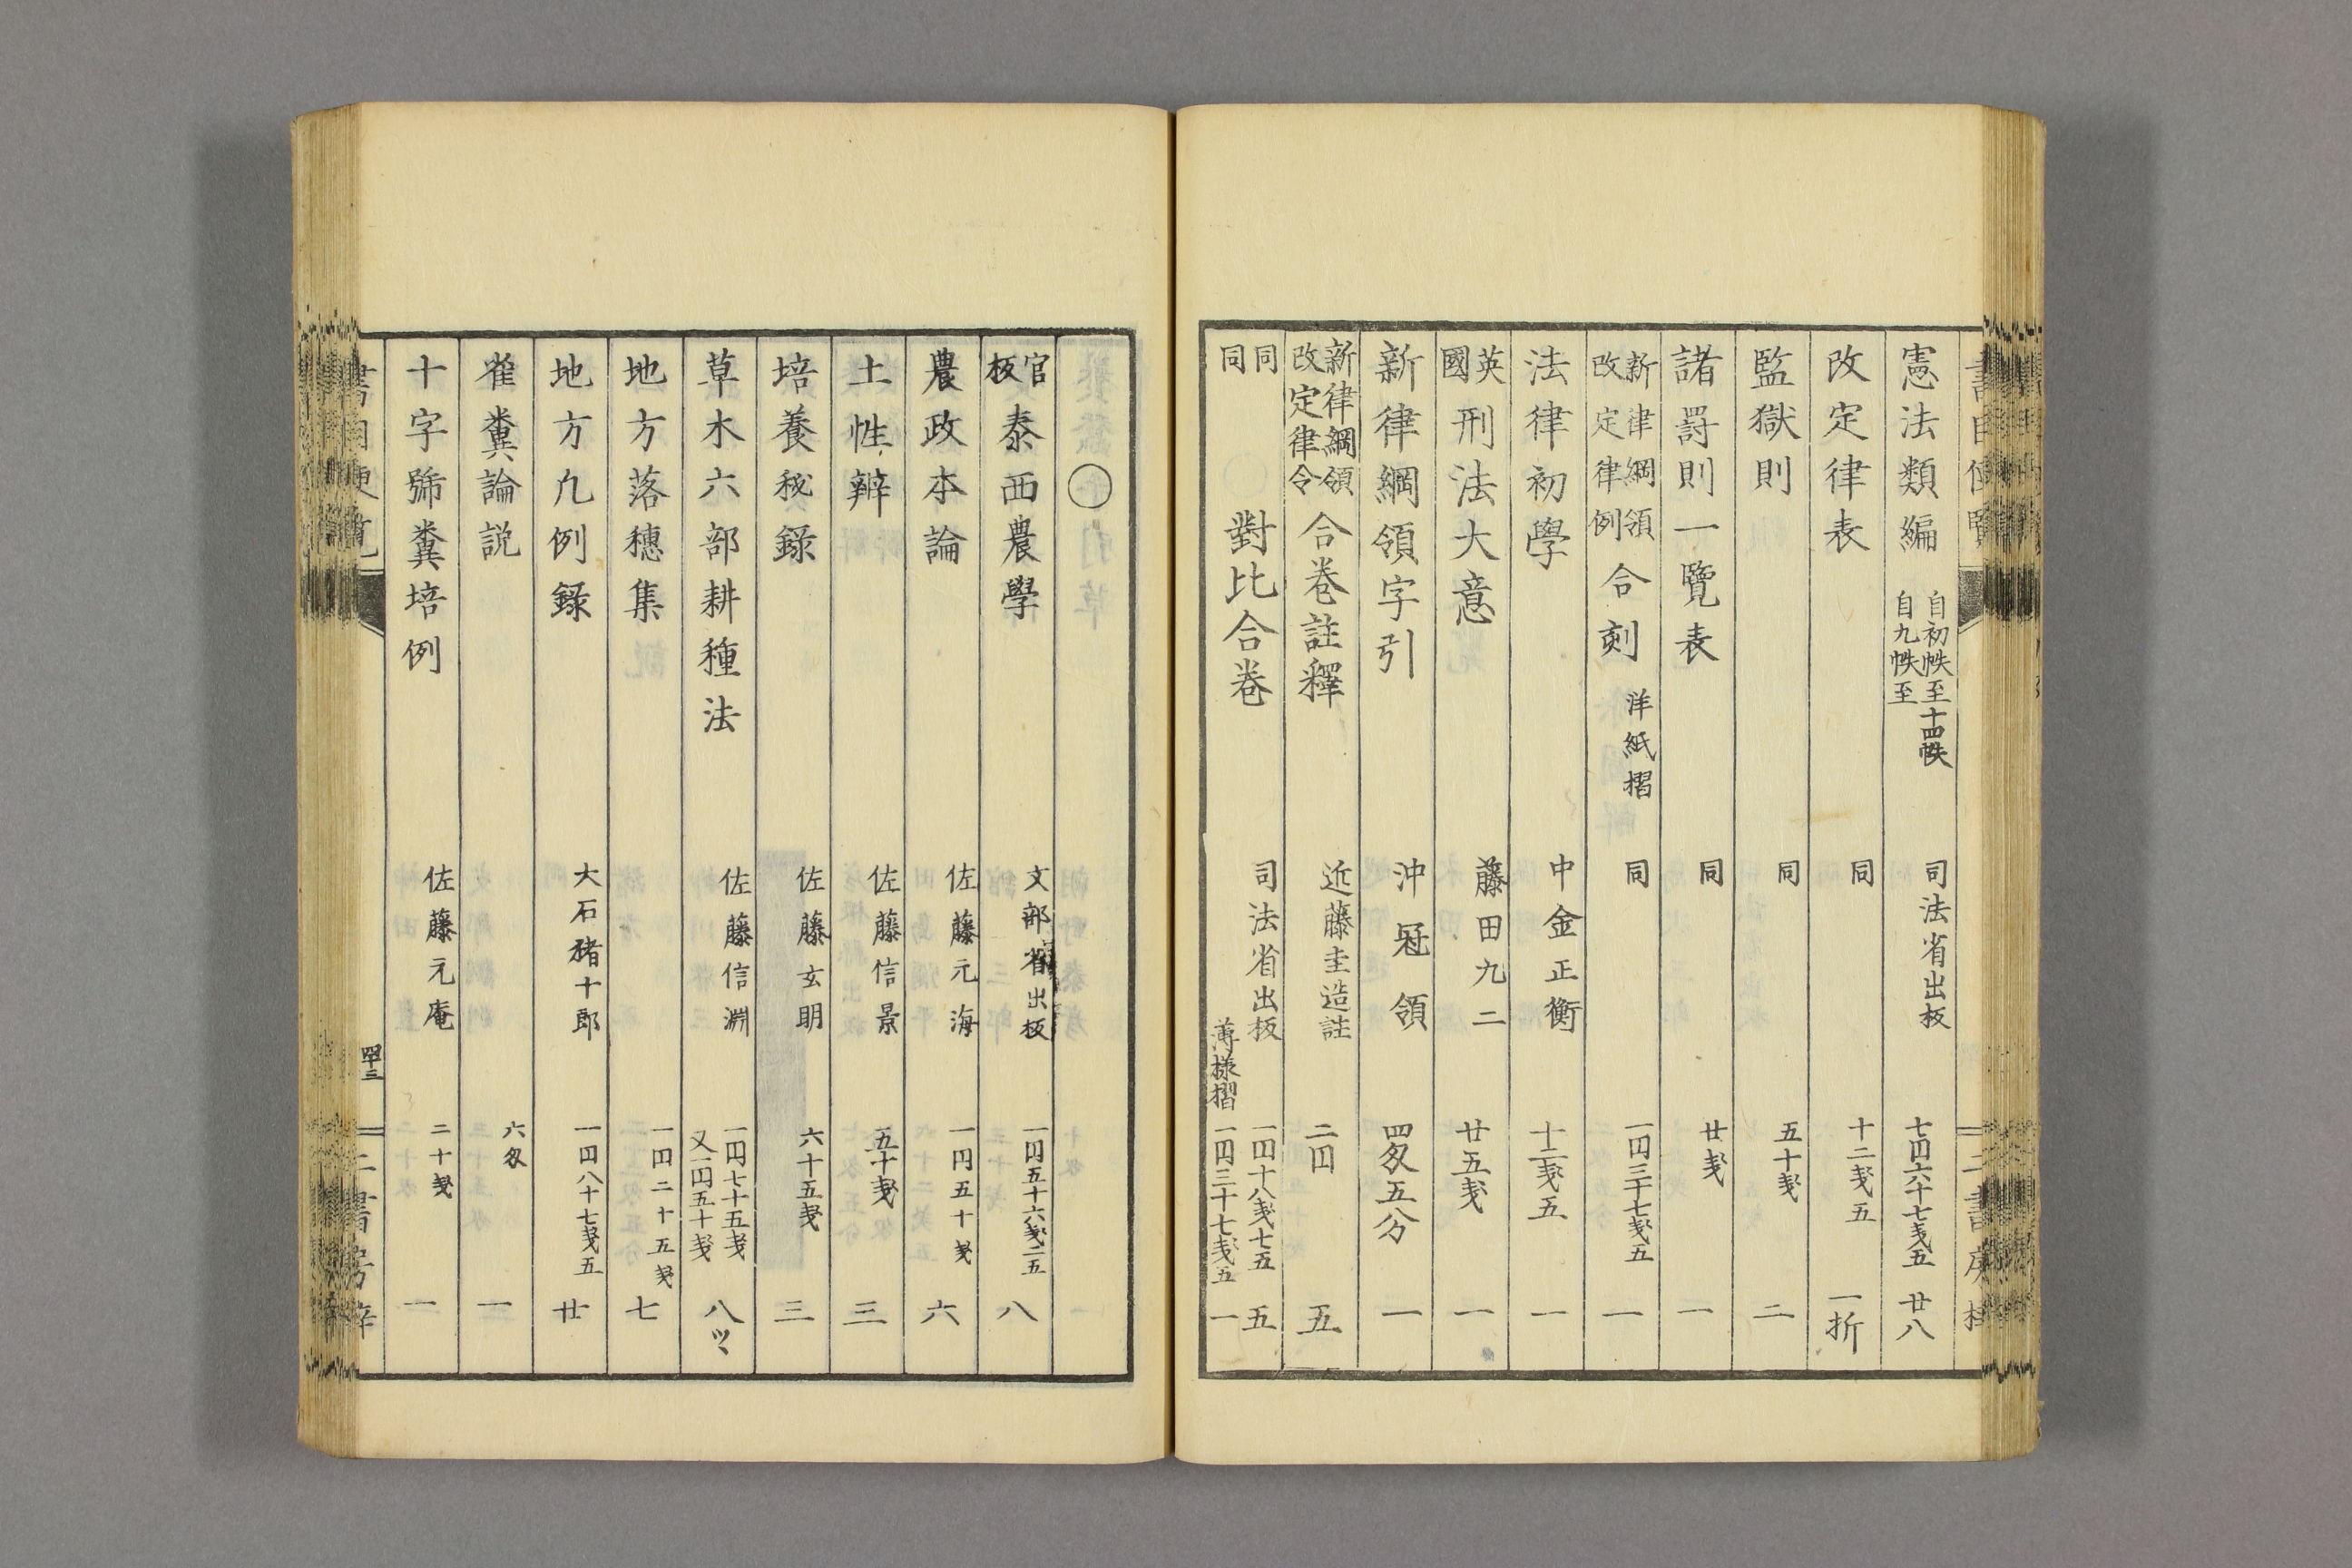 憲法類編 自初帙至十四帙 自九帙至 司法省出板 七円六十七戔五 廿八
改定律表 同 十二戔五 一折
監獄則 同 五十戔 二
諸罰則一覽表 同 廿戔 一
新律綱領 改定律例 合刻 洋紙摺 同 一円三十七戔五 一
法律初學 中金正衡 十二戔五 一
英國 刑法大意 藤田九二 廿五戔 一
新律綱領字引 沖冠領 四匁五分 一
新律綱領 改定律令 合巻註釋 近藤圭造註 二円 五
同 同 對比合巻 司法省出板 一円十八戔七五 五
薄様摺 一円三十七戔五 一
○
官板 泰西農學 文部省出板 一円五十六戔二五 八
農政本論 佐藤元海 一円五十戔 六
土性辨 佐藤信景 五十戔 三
培養秘録 佐藤玄明 六十五戔 三
草木六部耕種法 佐藤信淵 一円七十五戔 又一円五十戔 八
地方落穗集 一円二十五戔 七
地方凡例録 大石猪十郎 一円八十七戔五 廿
雀糞論説 六匁 一
十字號糞培例 佐藤元庵 二十戔 一
四十三